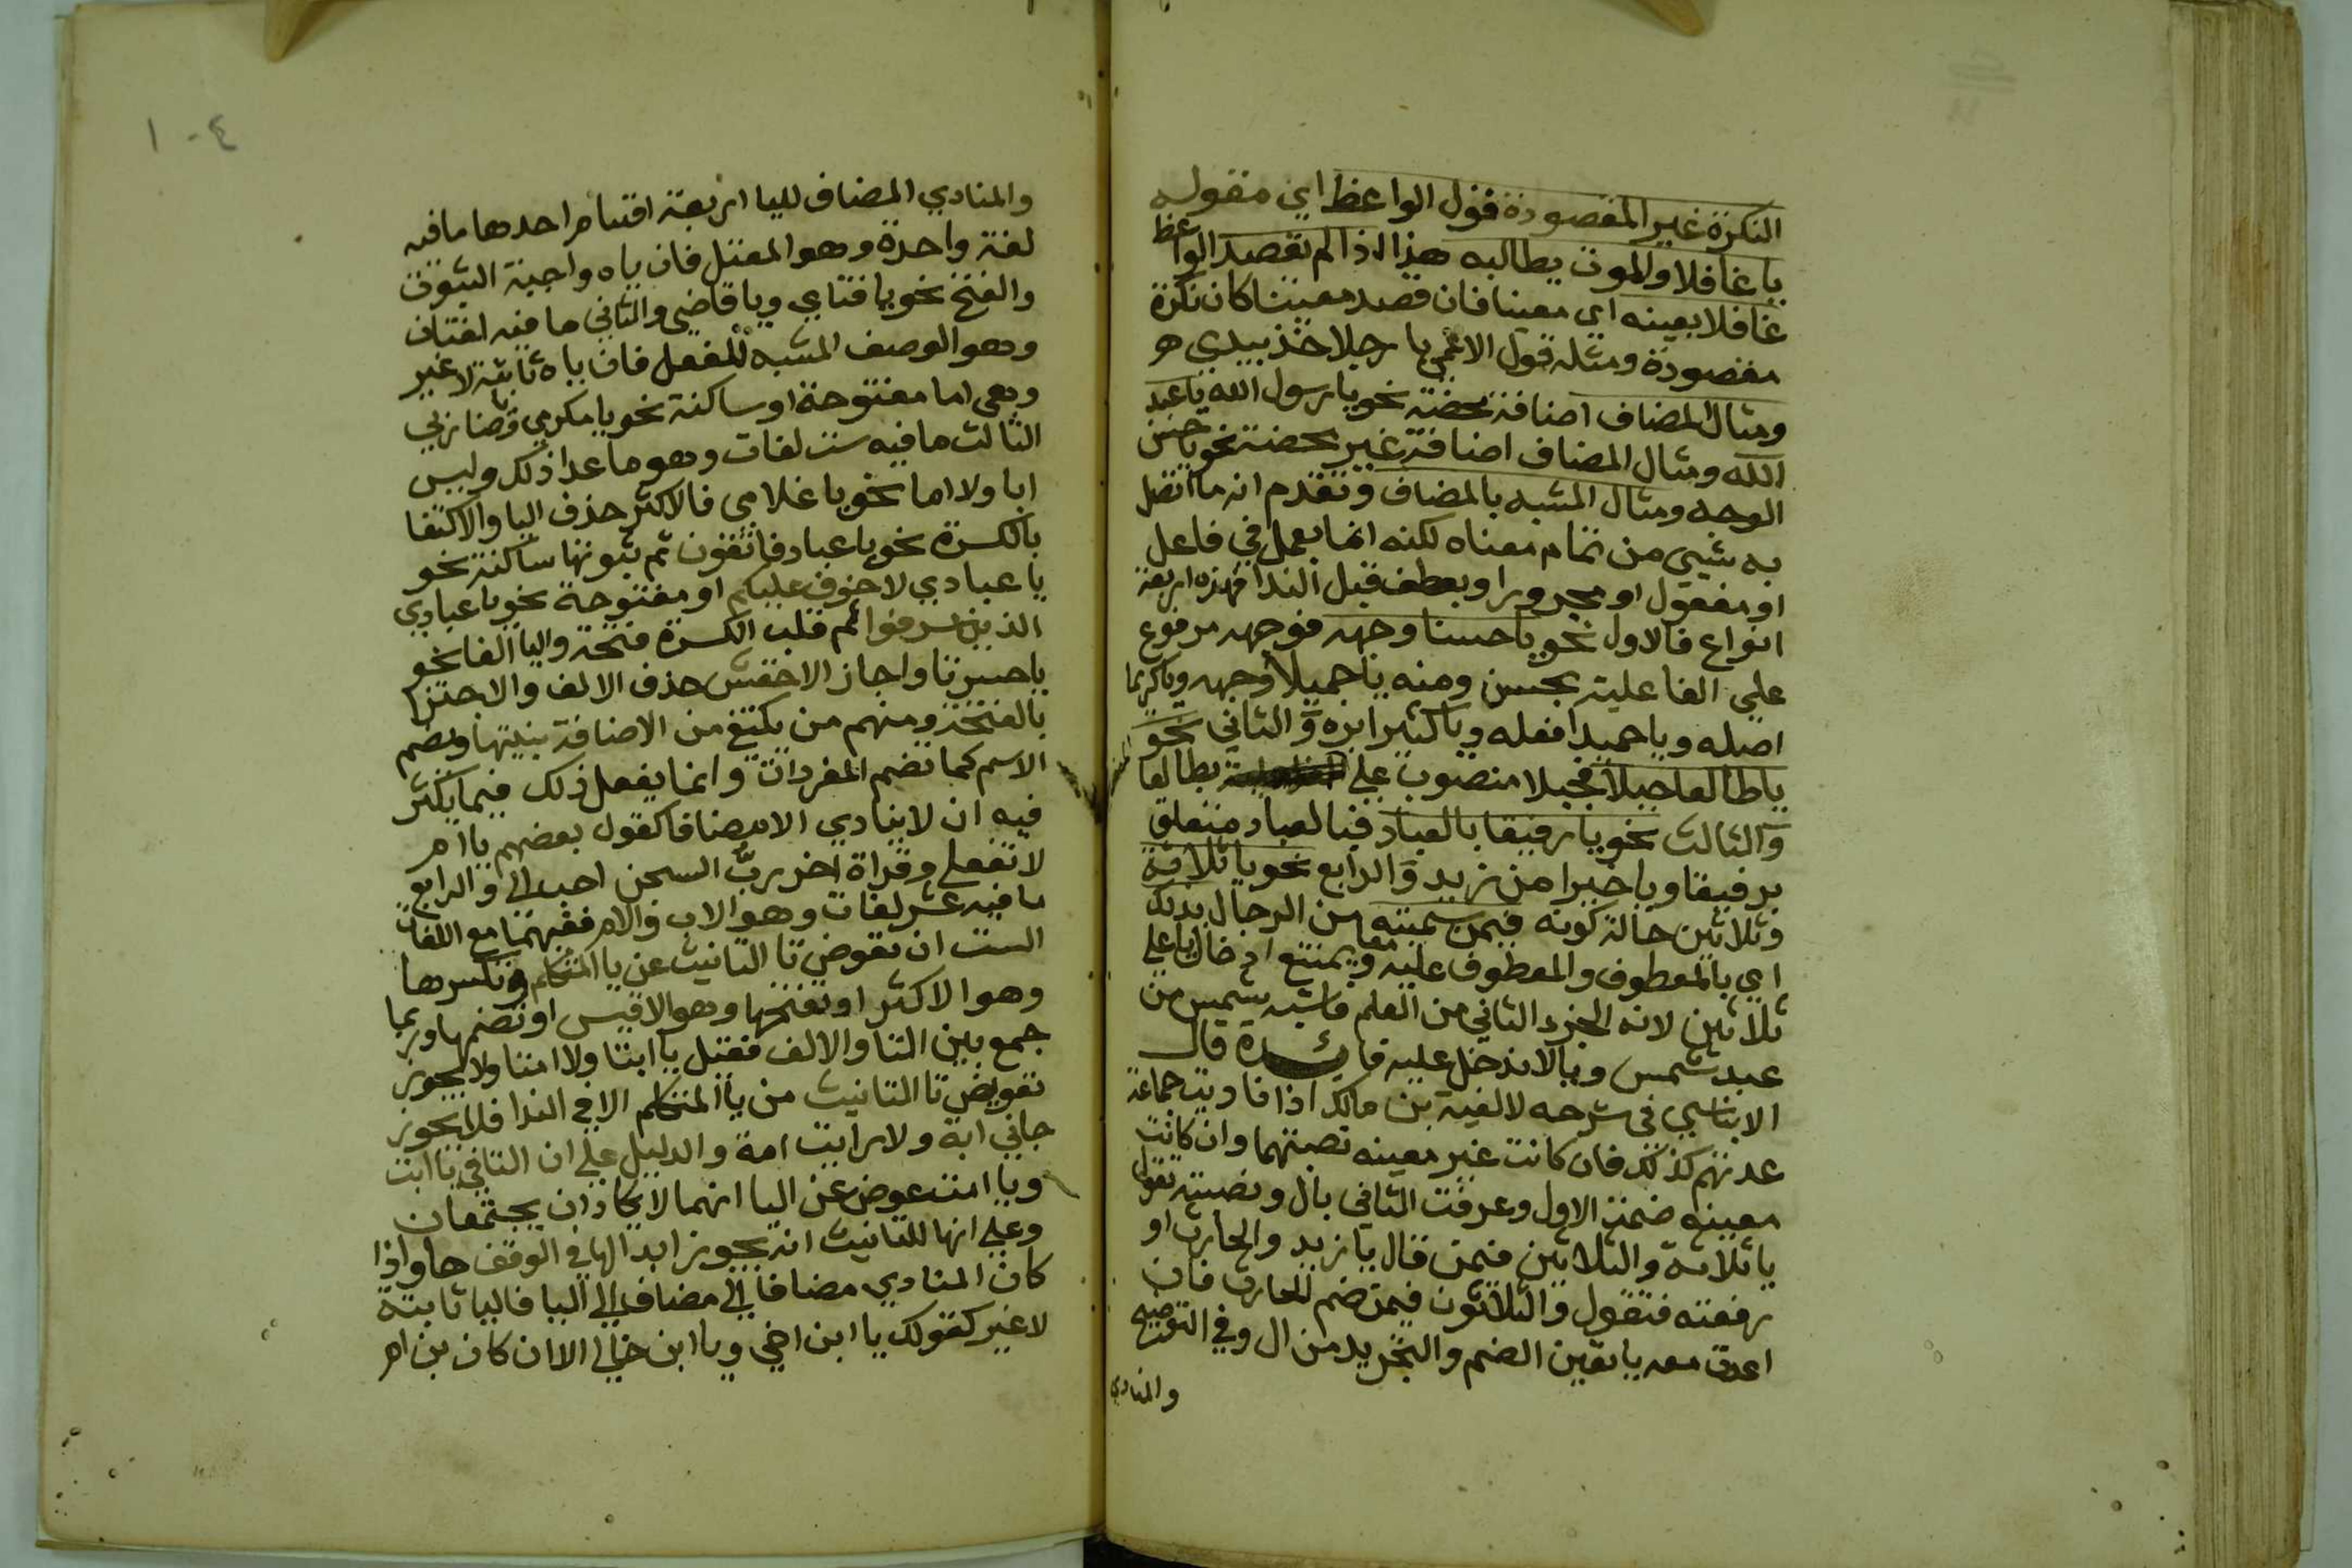 النكرة غير المقصودة قول الواعظ اي مقوله
يا غافلا والموت يطالبه هذا اذا لم تقصد الواعظ
غافلا بعينه اي معينا فان قصد معينا كان نكرة
مقصودة ومثله قول الاعمى يا رجلا خذ بيدي
ومثال المضاف اضافة محضة نحو يا رسول الله يا عبد
الله ومثال المضاف اضافة غير محضة نحو يا حسن
الوجه ومثال المشبه بالمضاف وتقدم انه ما اتصل
به شيي من تمام معناه لكنه انما يعمل في فاعل
او مفعول او مجرور او بعطف قبل الندا فهذه اربعة
انواع فالاول نحو يا حسنا وجهه فوجهه مرفوع
علي الفاعلية بحسن ومنه يا جميلا وجهه ويا كريما
اصله ويا حميدا فعله ويا كثيرا بره والثاني نحو
يا طالعا جبلا فجبلا منصوب علي بطالعا
والثالث نحو يا رفيقا بالعباد فبالعباد متعلق
برفيقا ويا خيرا من زيد والرابع نحو يا ثلاثة
وثلاثين حالة كونه فيمن سميته من الرجال بذلك
اي بالمعطوف والمعطوف عليه معا ويمتنع ادخال يا علي
ثلاثين لانه الجزء الثاني من العلم فاشبه شمس من
عبد شمس ويا لا تدخل عليه فائدة قال
الابناسي في شرحه لالفية بن مالك اذا ناديت جماعة
عدتهم كذلك فان كانت غير معينه نصبتهما وان كانت
معينه ضممت الاول وعرفت الثاني بال ونصبته تقول
يا ثلاثة والثلاثين فيمن قال يا زيد والحارث او
رفعته فتقول والثلاثون فيمن ضم للحارث فان
اعدت معه يا تعين الضم والتجريد من ال وفي التوضيح
والمنادي
١٠٤
والمنادي المضاف لليا اربعة اقسام احدها ما فيه
لغة واحدة وهو المعتل فان ياه واجبة الثبوت
والفتح نحو يا فتاي ويا قاضي والثاني ما فيه لغتان
وهو الوصف المشبه للفعل فان ياه ثابتة لا غير
وهي اما مفتوحة او ساكنة نحو يا مكرمي ويا ضاربي
الثالث ما فيه ست لغات وهو ما عدا ذلك وليس
ابا ولا اما نحو يا غلامي فالاكثر حذف اليا والاكتفا
بالكسرة نحو يا عباد فاتقون ثم ثبوتها ساكنة نحو
يا عبادي لا خوف عليكم او مفتوحة نحو يا عبادي
الذين اسرفوا ثم قلب الكسرة فتحة واليا الفا نحو
يا حسرتا واجاز الاخفش حذف الالف والاجتزا
بالفتحة ومنهم من يكتفي من الاضافة بنيتها ويضم
الاسم كما تضم المفردات وانما يفعل ذلك فيما يكثر
فيه ان لا ينادي الا مضافا كقول بعضهم يا ام
لا تفعلي وقراة اخر ربُّ السجن احب الي والرابع
ما فيه عشر لغات وهو الاب والام ففيهما مع اللغات
الست ان تعوض تا التانيث عن يا المتكلم وتكسرها
وهو الاكثر او تفتحها وهو الاقيس او تضمها وربما
جمع بين التا والالف فقيل يا ابتا ولا امتا ولا يجوز
تعويض تا التانيث من يا المتكلم الا في الندا فلا يجوز
جاني ابة ولا رايت امة والدليل علي ان التا في يا ابت
ويا امت عوض عن اليا انهما لا يكادان يجتمعان
وعلي انها للتانيث انه يجوز ابدالها في الوقف ها واذا
كان المنادي مضافا الي مضاف الي اليا فاليا ثابتة
لا غير كقولك يا ابن اخي ويا ابن خالي الا ان كان بن ام